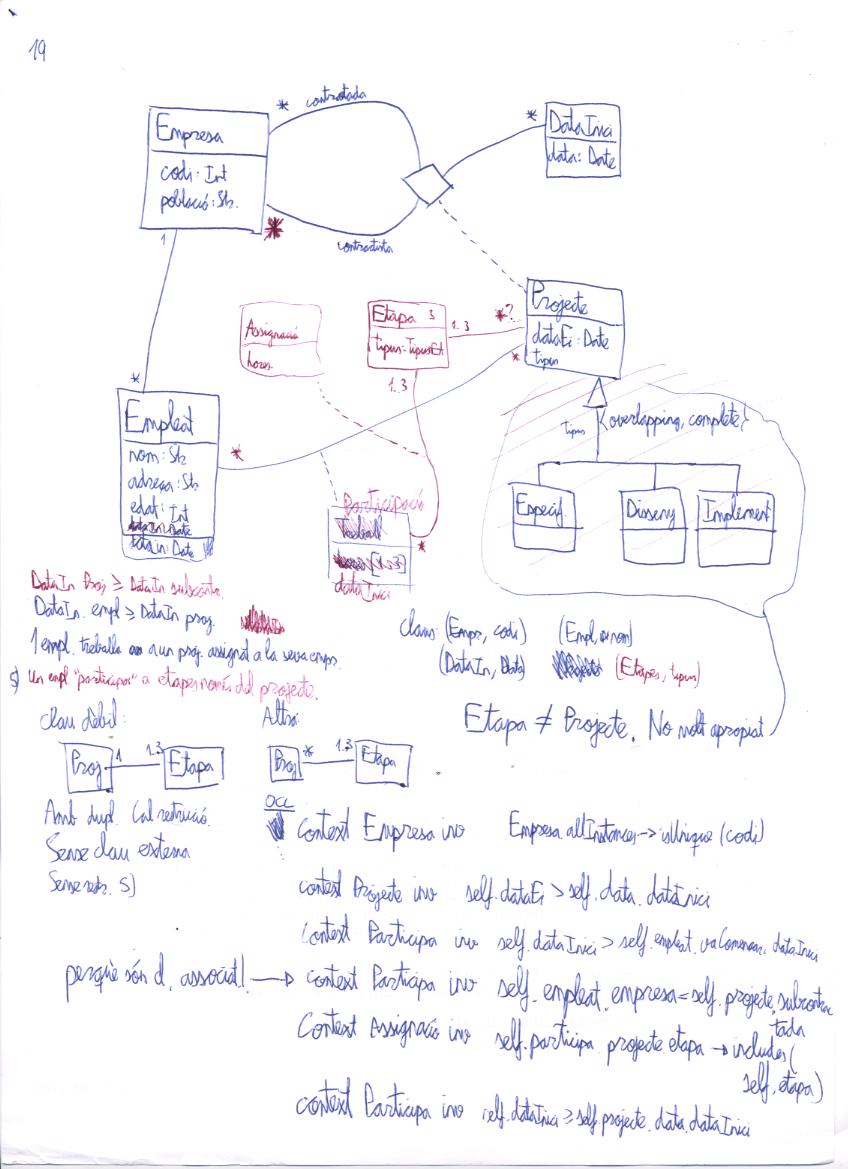 19
* contractada
Empresa
codi: Int
població: Str.
*
DataInici
data: Date
*
contractista
1
Projecte
dataFi: Date
tipus
*?
1..3
*
Etapa 3
tipus: TipusEt
1..3
Assignació
hores
tipus {overlapping, complete}
Especif.
Disseny
Implement
*
Empleat
nom: Str
adreça: Str
edat: Int
dataIn: Date
*
Participació
dataInici
*
DataIn Proj ≥ DataIn subcontr.
DataIn. empl ≥ DataIn proj.
1 empl. treballa a un proj. assignat a la seva empr.
5) Un empl "participa" a etapes només del projecte.
Claus: (Empr, codi) (Empl, nom)
(DataIn, Data) (Etapes, tipus)
Etapa ≠ Projecte. No molt apropiat
Clau dèbil: Altra:
Proj 1 1..3 Etapa
Proj * 1..3 Etapa
Amb dupl. Cal restricció.
Sense clau externa
Sense restr. 5)
OCL
Context Empresa inv Empresa.allInstances->isUnique (codi)
context Projecte inv self.dataFi > self.data.dataInici
Context Participa inv self.dataInici > self.empleat.vaComençar.dataInici
perquè són d. associat! → context Participa inv self.empleat.empresa = self.projecte.subcontractada
Context Assignació inv self.participa.projecte.etapa → includes(
self.etapa)
context Participa inv self.dataInici ≥ self.projecte.data.dataInici